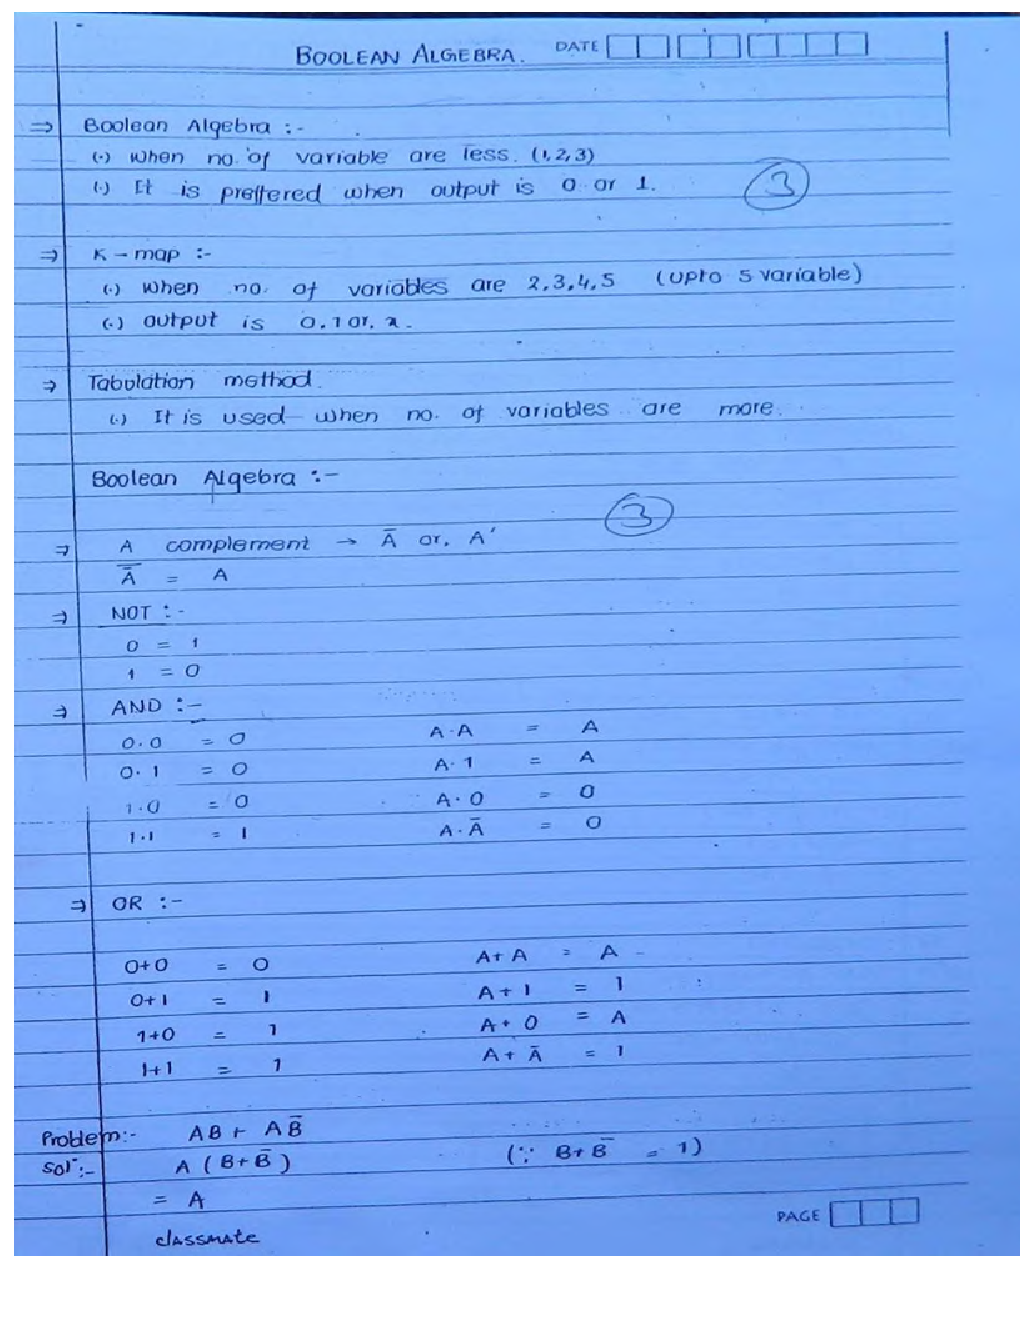 BOOLEAN ALGEBRA. DATE
⇒ Boolean Algebra :-
(·) when no. of variable are less. (1,2,3)
(·) It is preffered when output is 0 or 1. 3
⇒ K-map :-
(·) when no. of variables are 2,3,4,5 (upto 5 variable)
(·) output is 0, 1 or, x.
⇒ Tabulation method.
(·) It is used when no. of variables are more.
Boolean Algebra :-
3
⇒ A complement → Ā or, A'
A̿ = A
⇒ NOT :-
0 = 1
1 = 0
⇒ AND :-
0·0 = 0 A·A = A
0·1 = 0 A·1 = A
1·0 = 0 A·0 = 0
1·1 = 1 A·Ā = 0
⇒ OR :-
0+0 = 0 A+A = A
0+1 = 1 A+1 = 1
1+0 = 1 A+0 = A
1+1 = 1 A+Ā = 1
Problem:- AB + AB̄
Sol":- A (B+B̄) (∵ B+B̄ = 1)
= A
classmate PAGE